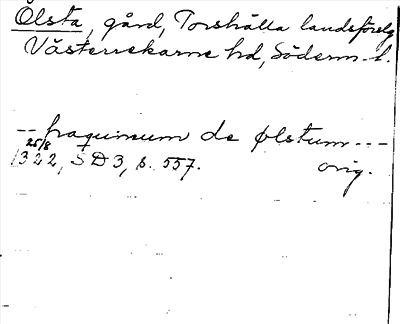 Ölsta, gård, Torshälla landsförslg
Västerrekarne hd, Söderm. l.
-- fraquinum de Ølstum ---
25/8
1322, SD 3, s. 557. orig.